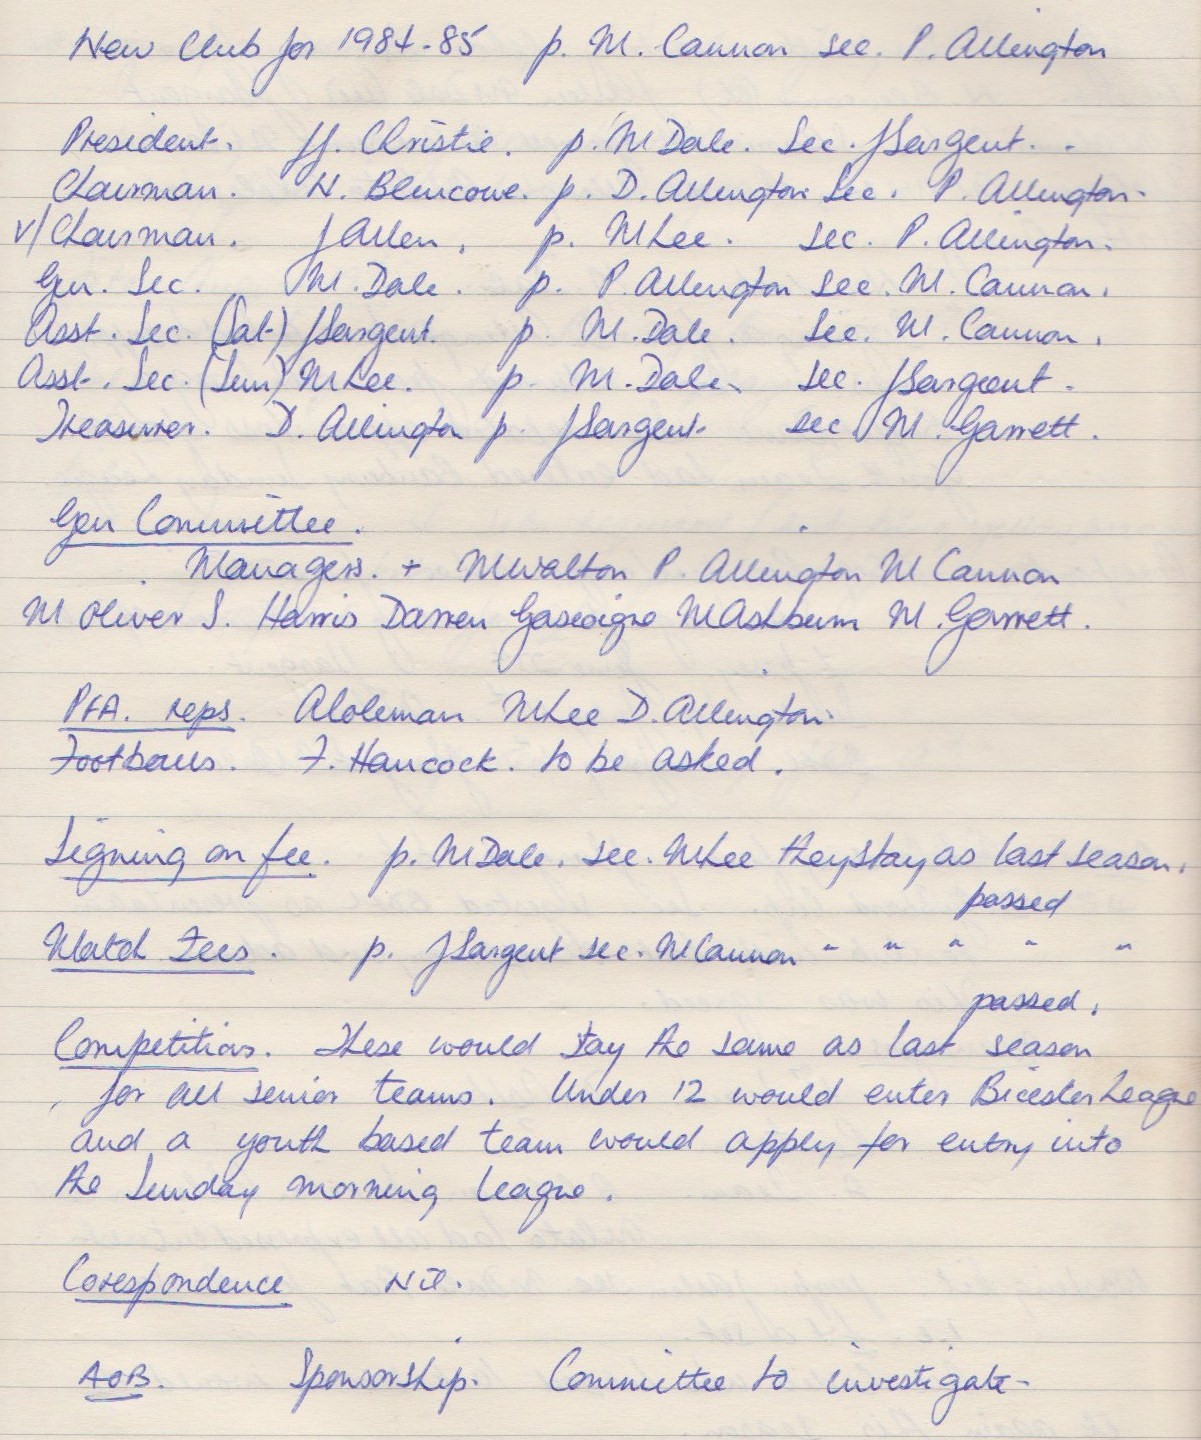 New Club for 1984-85 p. M. Cannon sec. P. Allington
President. J. Christie. p. M Dale. Sec. J Sargent.
Chairman. N. Blencowe. p. D. Allington Sec. P. Allington.
V/Chairman. J Allen. p. M Lee. sec. P. Allington.
Gen. Sec. M. Dale. p. P. Allington sec. M. Cannon.
Asst. Sec. (Sat) J Sargent. p. M. Dale. sec. M. Cannon.
Asst. Sec. (Sun) M Lee. p. M. Dale. sec. J Sargeont.
Treasurer. D. Allington p. J Sargent. sec M. Garrett.
Gen Committee.
Managers. + M Walton P. Allington M Cannon
M Oliver S. Harris Darren Gascoigne M Ashburn M. Garrett.
PFA. reps. A Coleman M Lee D. Allington.
Footballs. F. Hancock. to be asked.
Signing on fee. p. M Dale. sec. M Lee they stay as last season.
passed
Match Fees. p. J Sargent sec. M Cannon " " " " "
passed.
Competitions. These would stay the same as last season
for all senior teams. Under 12 would enter Bicester League
and a youth based team would apply for entry into
the Sunday morning league.
Corespondence Nil.
AOB. Sponsorship. Committee to investigate-